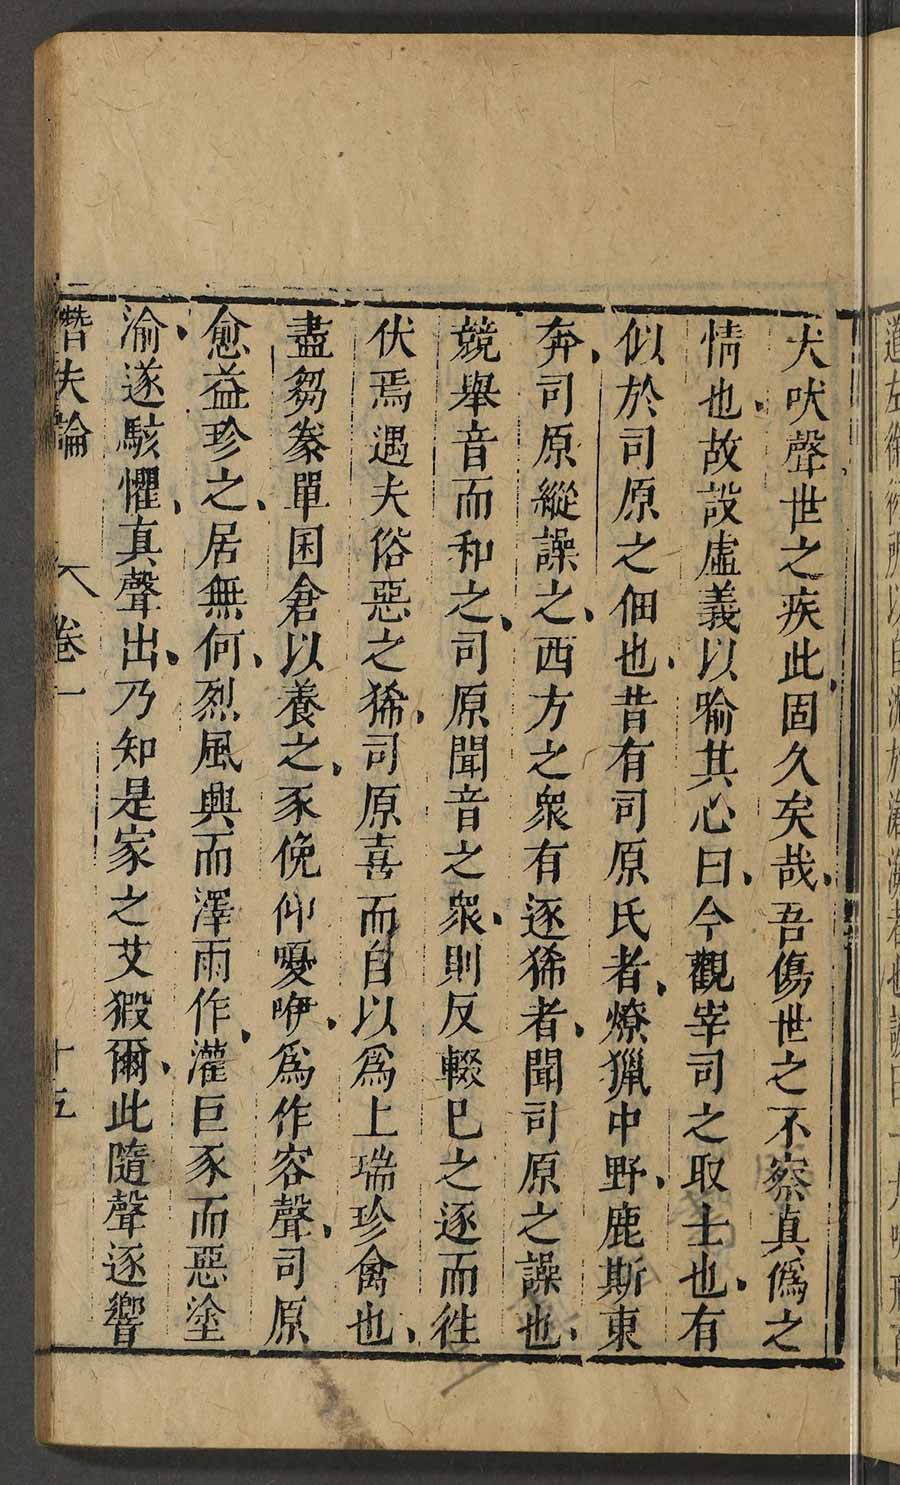 犬吠聲世之疾此固久矣哉、吾傷世之不察真偽之
情也、故設虛義以喻其心曰、今觀宰司之取士也、有
似於司原之佃也、昔有司原氏者、燎獵中野、鹿斯東
奔、司原縱譟之、西方之衆有逐狶者、聞司原之譟也、
競舉音而和之、司原聞音之衆、則反輟巳之逐而徃
伏焉遇夫俗惡之狶、司原喜而自以爲上瑞珍禽也、
盡芻豢單囷倉以養之、豕俛仰嚘咿、爲作容聲、司原
愈益珍之、居無何、烈風興而澤雨作、灌巨豕而惡塗
渝、遂駭懼、真聲出、乃知是家之艾猳爾、此隨聲逐響
潛夫論 卷一 十五